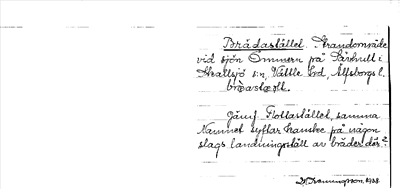 Brädastället. Strandområde
vid sjön Ommern på Särhult i
Skallsjö s:n, Vättle hd, Älfsborgs l.
Jämf. Flottastället, samma
Namnet syftar kanske på någon
slags landningställ av bräder där?